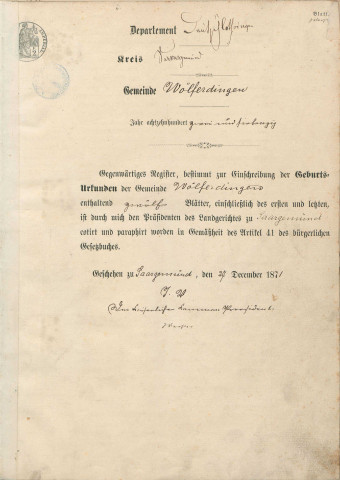 Blatt.
Departement Deutsch Lothringen
Kreis Saargemünd
Gemeinde Wölferdingen
Jahr achtzehnhundert zwei und siebenzig
Gegenwärtiges Register, bestimmt zur Einschreibung der Geburts-
Urkunden der Gemeinde Wölferdingen
enthaltend zwölf Blätter, einschließlich des ersten und letzten,
ist durch mich den Präsidenten des Landgerichtes zu Saargemünd
cotirt und paraphirt worden in Gemäßheit des Artikel 41 des bürgerlichen
Gesetzbuches.
Geschehen zu Saargemünd, den 27 December 1871
Der Kaiserliche Kammer Präsident